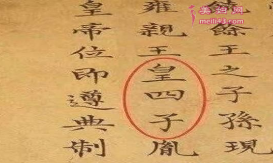 餘王之子孫現
雍親王皇四子胤
皇帝位即遵典制